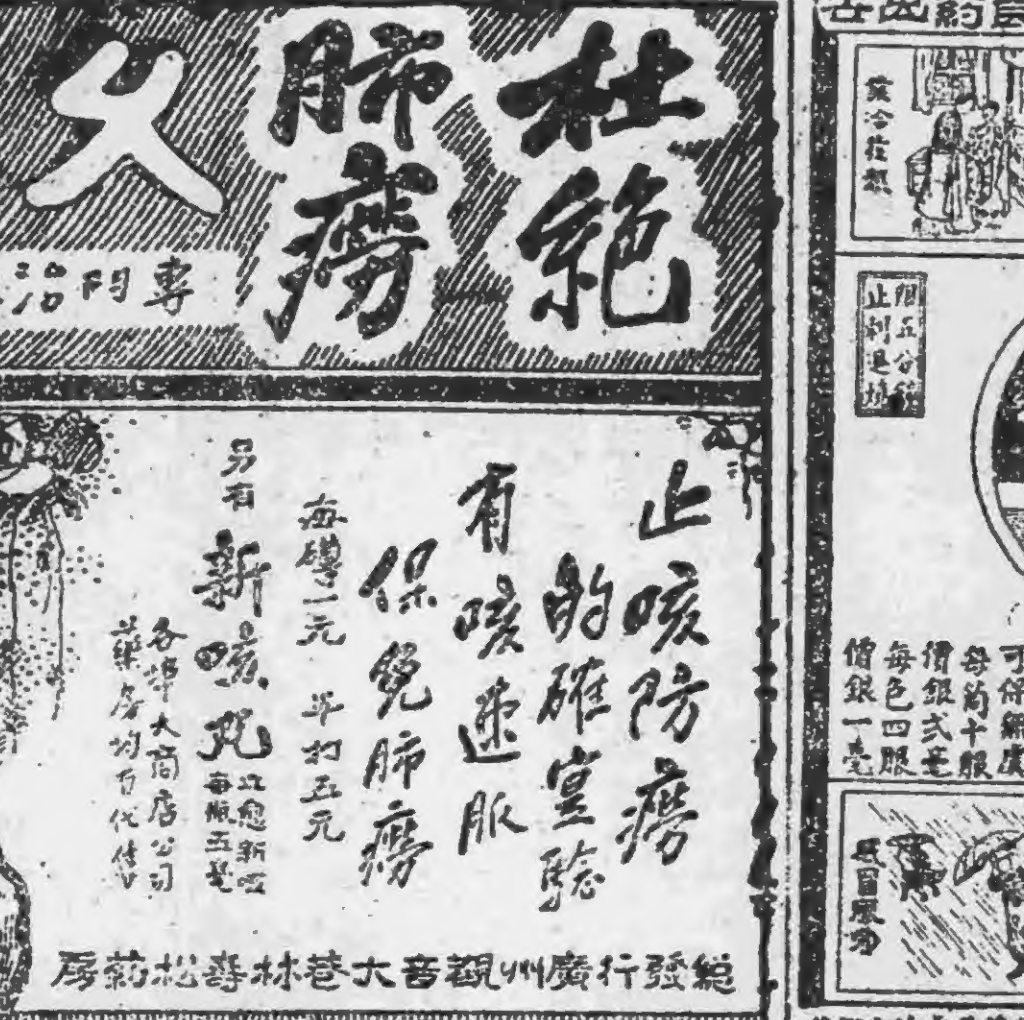 杜絕
肺癆
久
專門治
止咳防癆
的確靈驗
有咳速服
保免肺癆
每罇一元 半打五元
另有新咳丸
立愈新咳
每瓶五毫
各埠大商店公司
藥房均有代售
總發行廣州觀音大巷林壽松葯房
阻五分鐘
止刻退燒
可保無虞
每筒十服
價銀弍毫
每包四服
價銀一毫